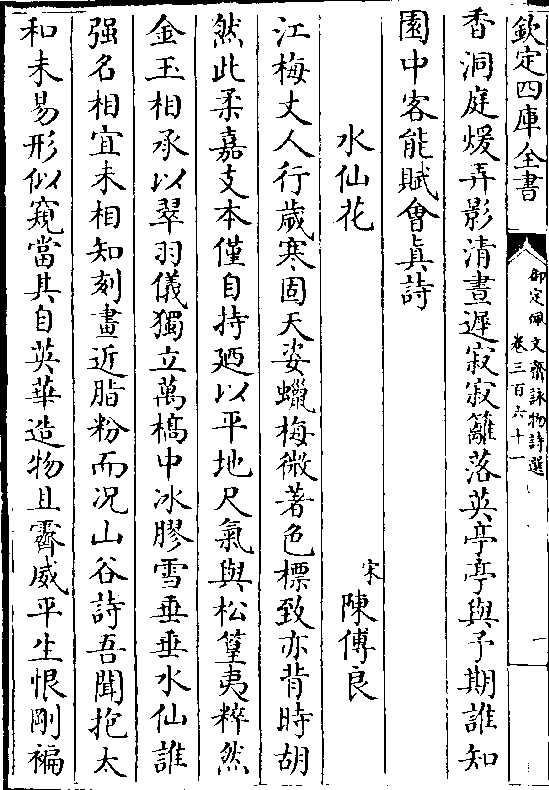 欽定四庫全書
御定佩文齋詠物詩選
卷三百六十一
一
香洞庭煖弄影清晝遲寂寂籬落英亭亭與予期誰知
園中客能賦會真詩
水仙花
宋
陳傅良
江梅丈人行歲寒固天姿蠟梅微著色標致亦背時胡
然此柔嘉支本僅自持廼以平地尺氣與松篁夷粹然
金玉相承以翠羽儀獨立萬槁中冰膠雪垂垂水仙誰
强名相宜未相知刻畫近脂粉而况山谷詩吾聞抱太
和未易形似窺當其自英華造物且霽威平生恨剛褊